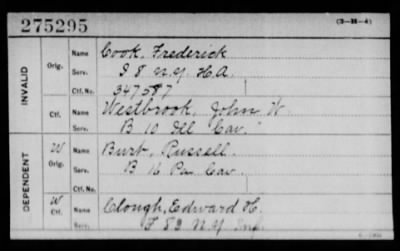 275295
(3-M-4)
INVALID
Orig.
Name Cook, Frederick
Serv. I 8 N.Y. H.A.
Ctf. No. 347587
Ctf.
Name Westbrook, John W.
Serv. B 10 Ill Cav.
DEPENDENT
W
Orig.
Name Burt, Russell
Serv. B 16 Pa. Cav.
Ctf. No.
W
Ctf.
Name Clough, Edward H.
Serv. F 82 N.Y. Inf.